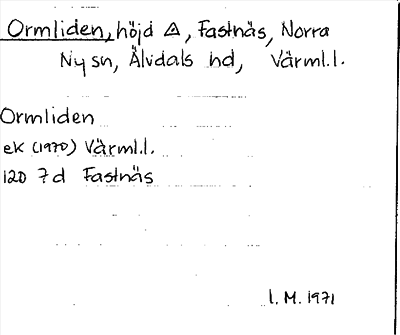 Ormliden, höjd △, Fastnäs, Norra
Ny sn, Älvdals hd, Värml.l.
Ormliden
ek (1970) Värml.l.
12D 7d Fastnäs
l. M. 1971